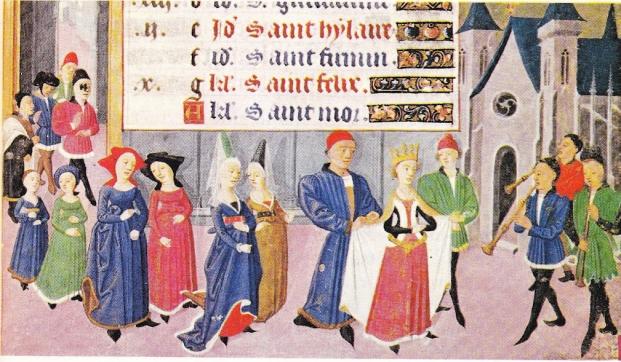 c Id' Saint hylaire
f id. Saint firmin.
x. g kl. Saint felix.
A kl. Saint mor.